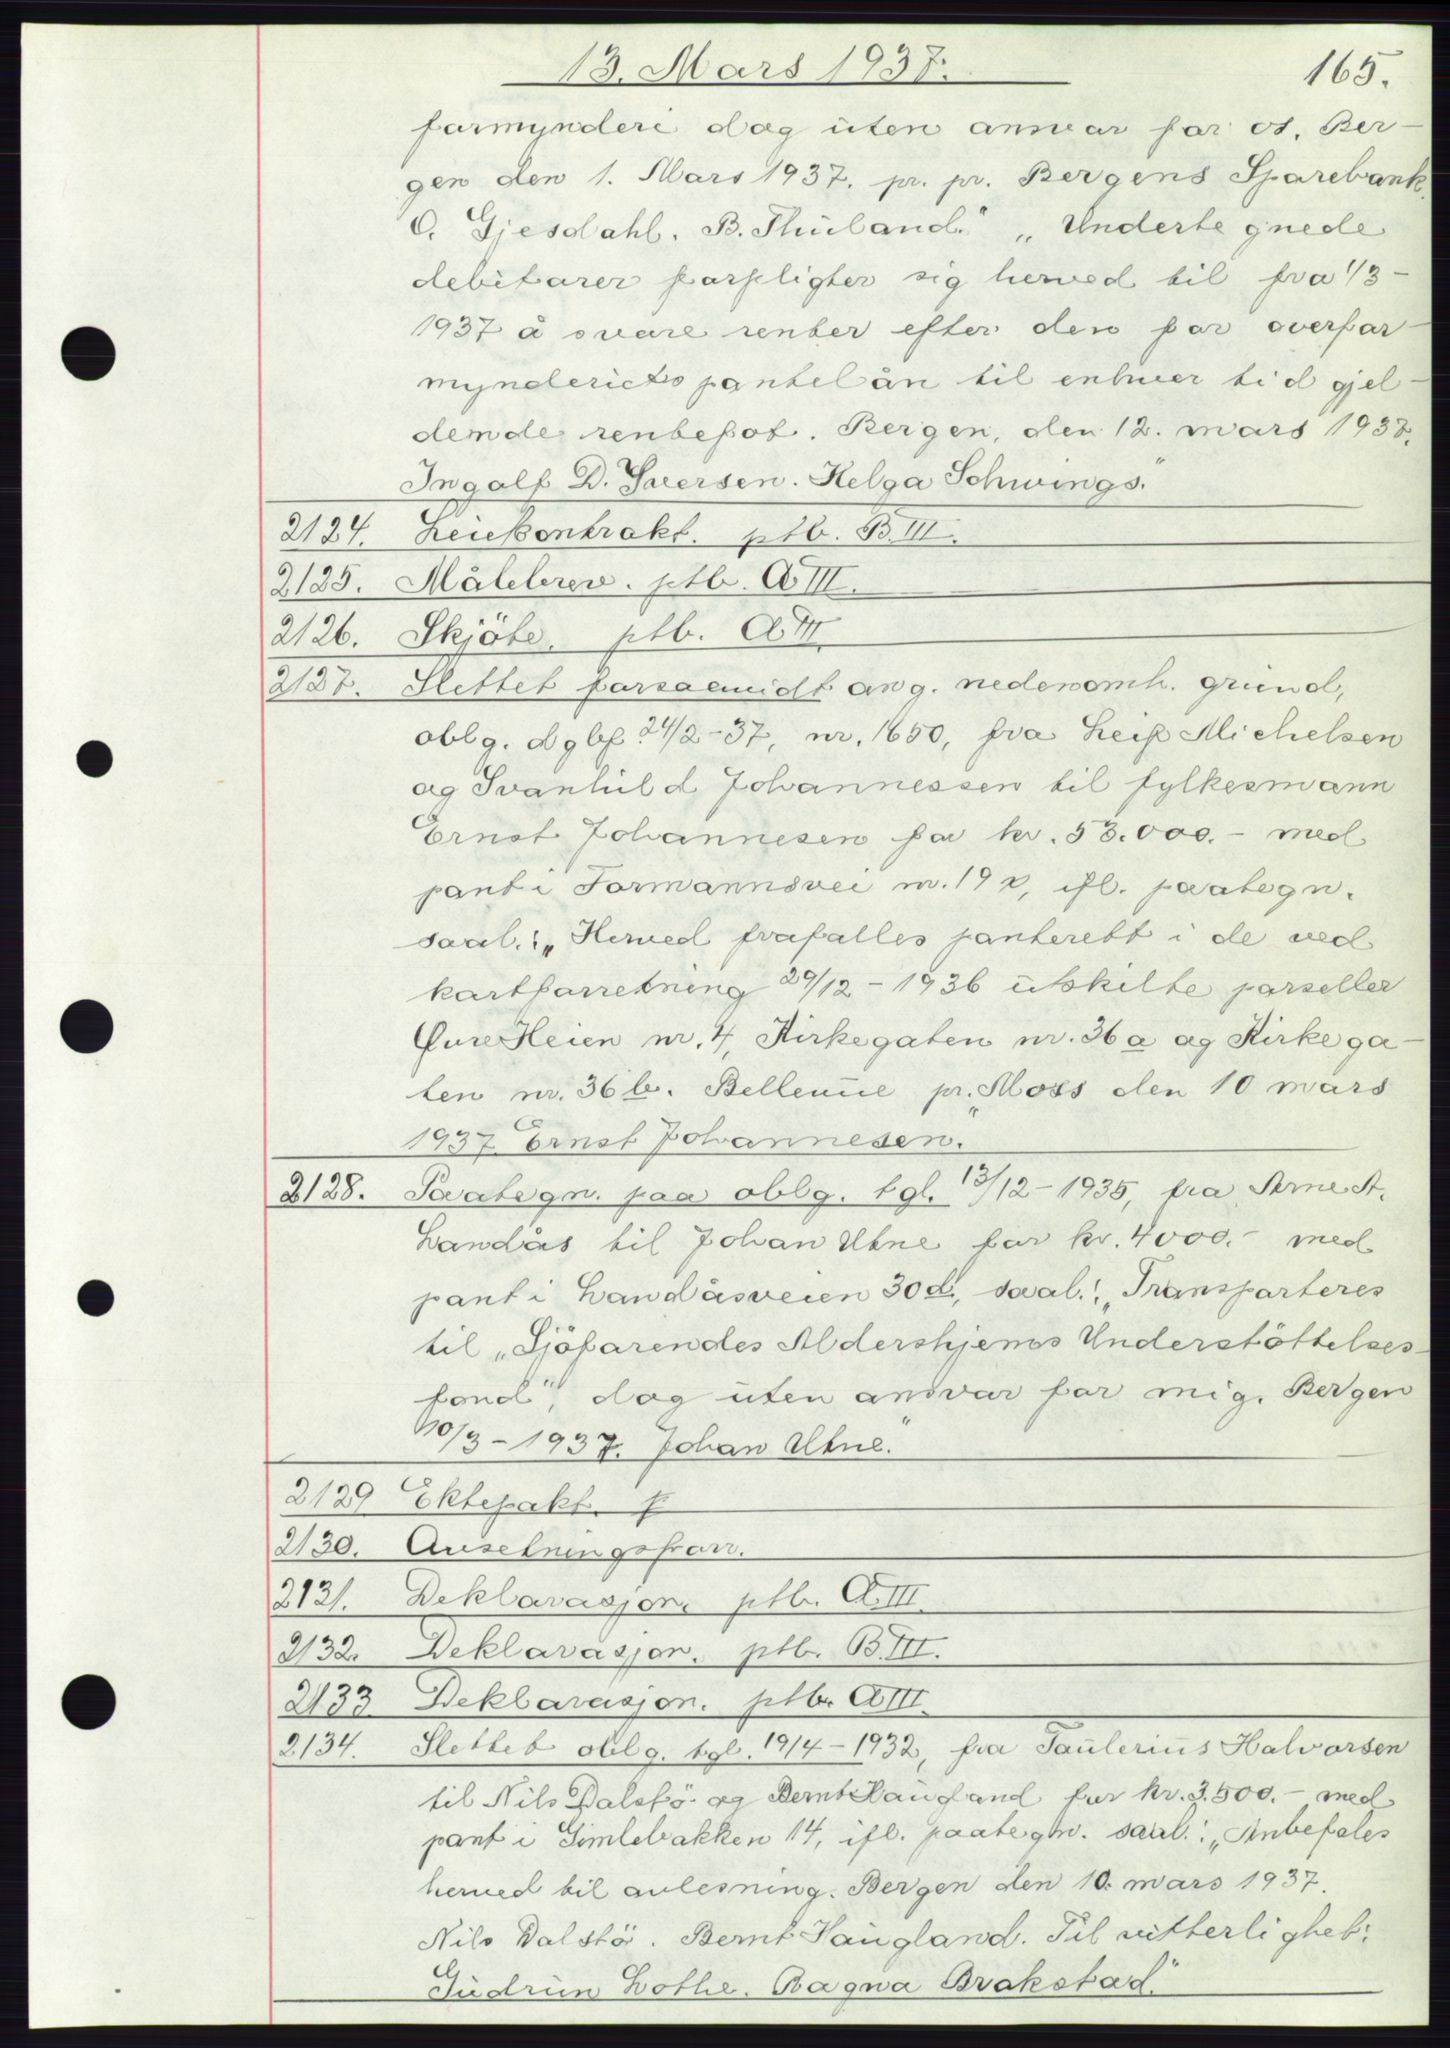 13. Mars 1937.
165.
formynderi dog uten ansvar for os. Ber-
gen den 1. Mars 1937. pr. pr. Bergens Sparebank
O. Gjesdahl. B. Thuland." „Undertegnede
debitorer forpligter sig herved til fra 1/3-
1937 å svare renter efter den for overfor-
mynderiets pantelån til enhver tid gjel-
dende rentefot. Bergen, den 12. mars 1937.
Ingolf D. Iversen. Helga Schwings."
2124. Leiekontrakt. ptb. B.III.
2125. Målebrev. ptb. A III.
2126. Skjöte. ptb. A III.
2127. Slettet forsaavidt ang. nedenomh. grund,
oblg. dgbf. 24/2-37, nr. 1650, fra Leif Michelsen
og Svanhild Johannessen til fylkesmann
Ernst Johannesen for kr. 53.000.- med
pant i Formannsvei nr. 19 , ifl. paategn.
saal.: „Herved frafalles panterett i de ved
kartforretning 29/12-1936 utskilte parseller
Øure Heien nr. 4, Kirkegaten nr. 36 a og Kirkega-
ten nr. 36 b. Bellevue pr. Moss den 10 mars
1937 Ernst Johannesen."
2128. Paategn. paa oblg. tgl. 13/12-1935, fra Arne A.
Landås til Johan Utne for kr. 4000.- med
pant i Landåsveien 30 d, saal.: „Transporteres
til „Sjöfarendes Aldershjems Understöttelses-
fond", dog uten ansvar for mig. Bergen
10/3-1937. Johan Utne."
2129 Ektepakt. F
2130. Auselningsforr.
2131. Deklarasjon. ptb. A.III.
2132. Deklarasjon. ptb. B.III.
2133 Deklarasjon. ptb. A III.
2134. Slettet oblg. tgl. 19/4-1932, fra Taulerius Halvorsen
til Nils Dalstö og Bernt Haugland for kr. 3.500.- med
pant i Gimlebakken 14, ifl. paategn. saal.: „Anbefales
herved til avlesning. Bergen den 10. mars 1937.
Nils Dalstö. Bernt Haugland. Til vitterlighet:
Gudrun Lothe. Ragna Brakstad."